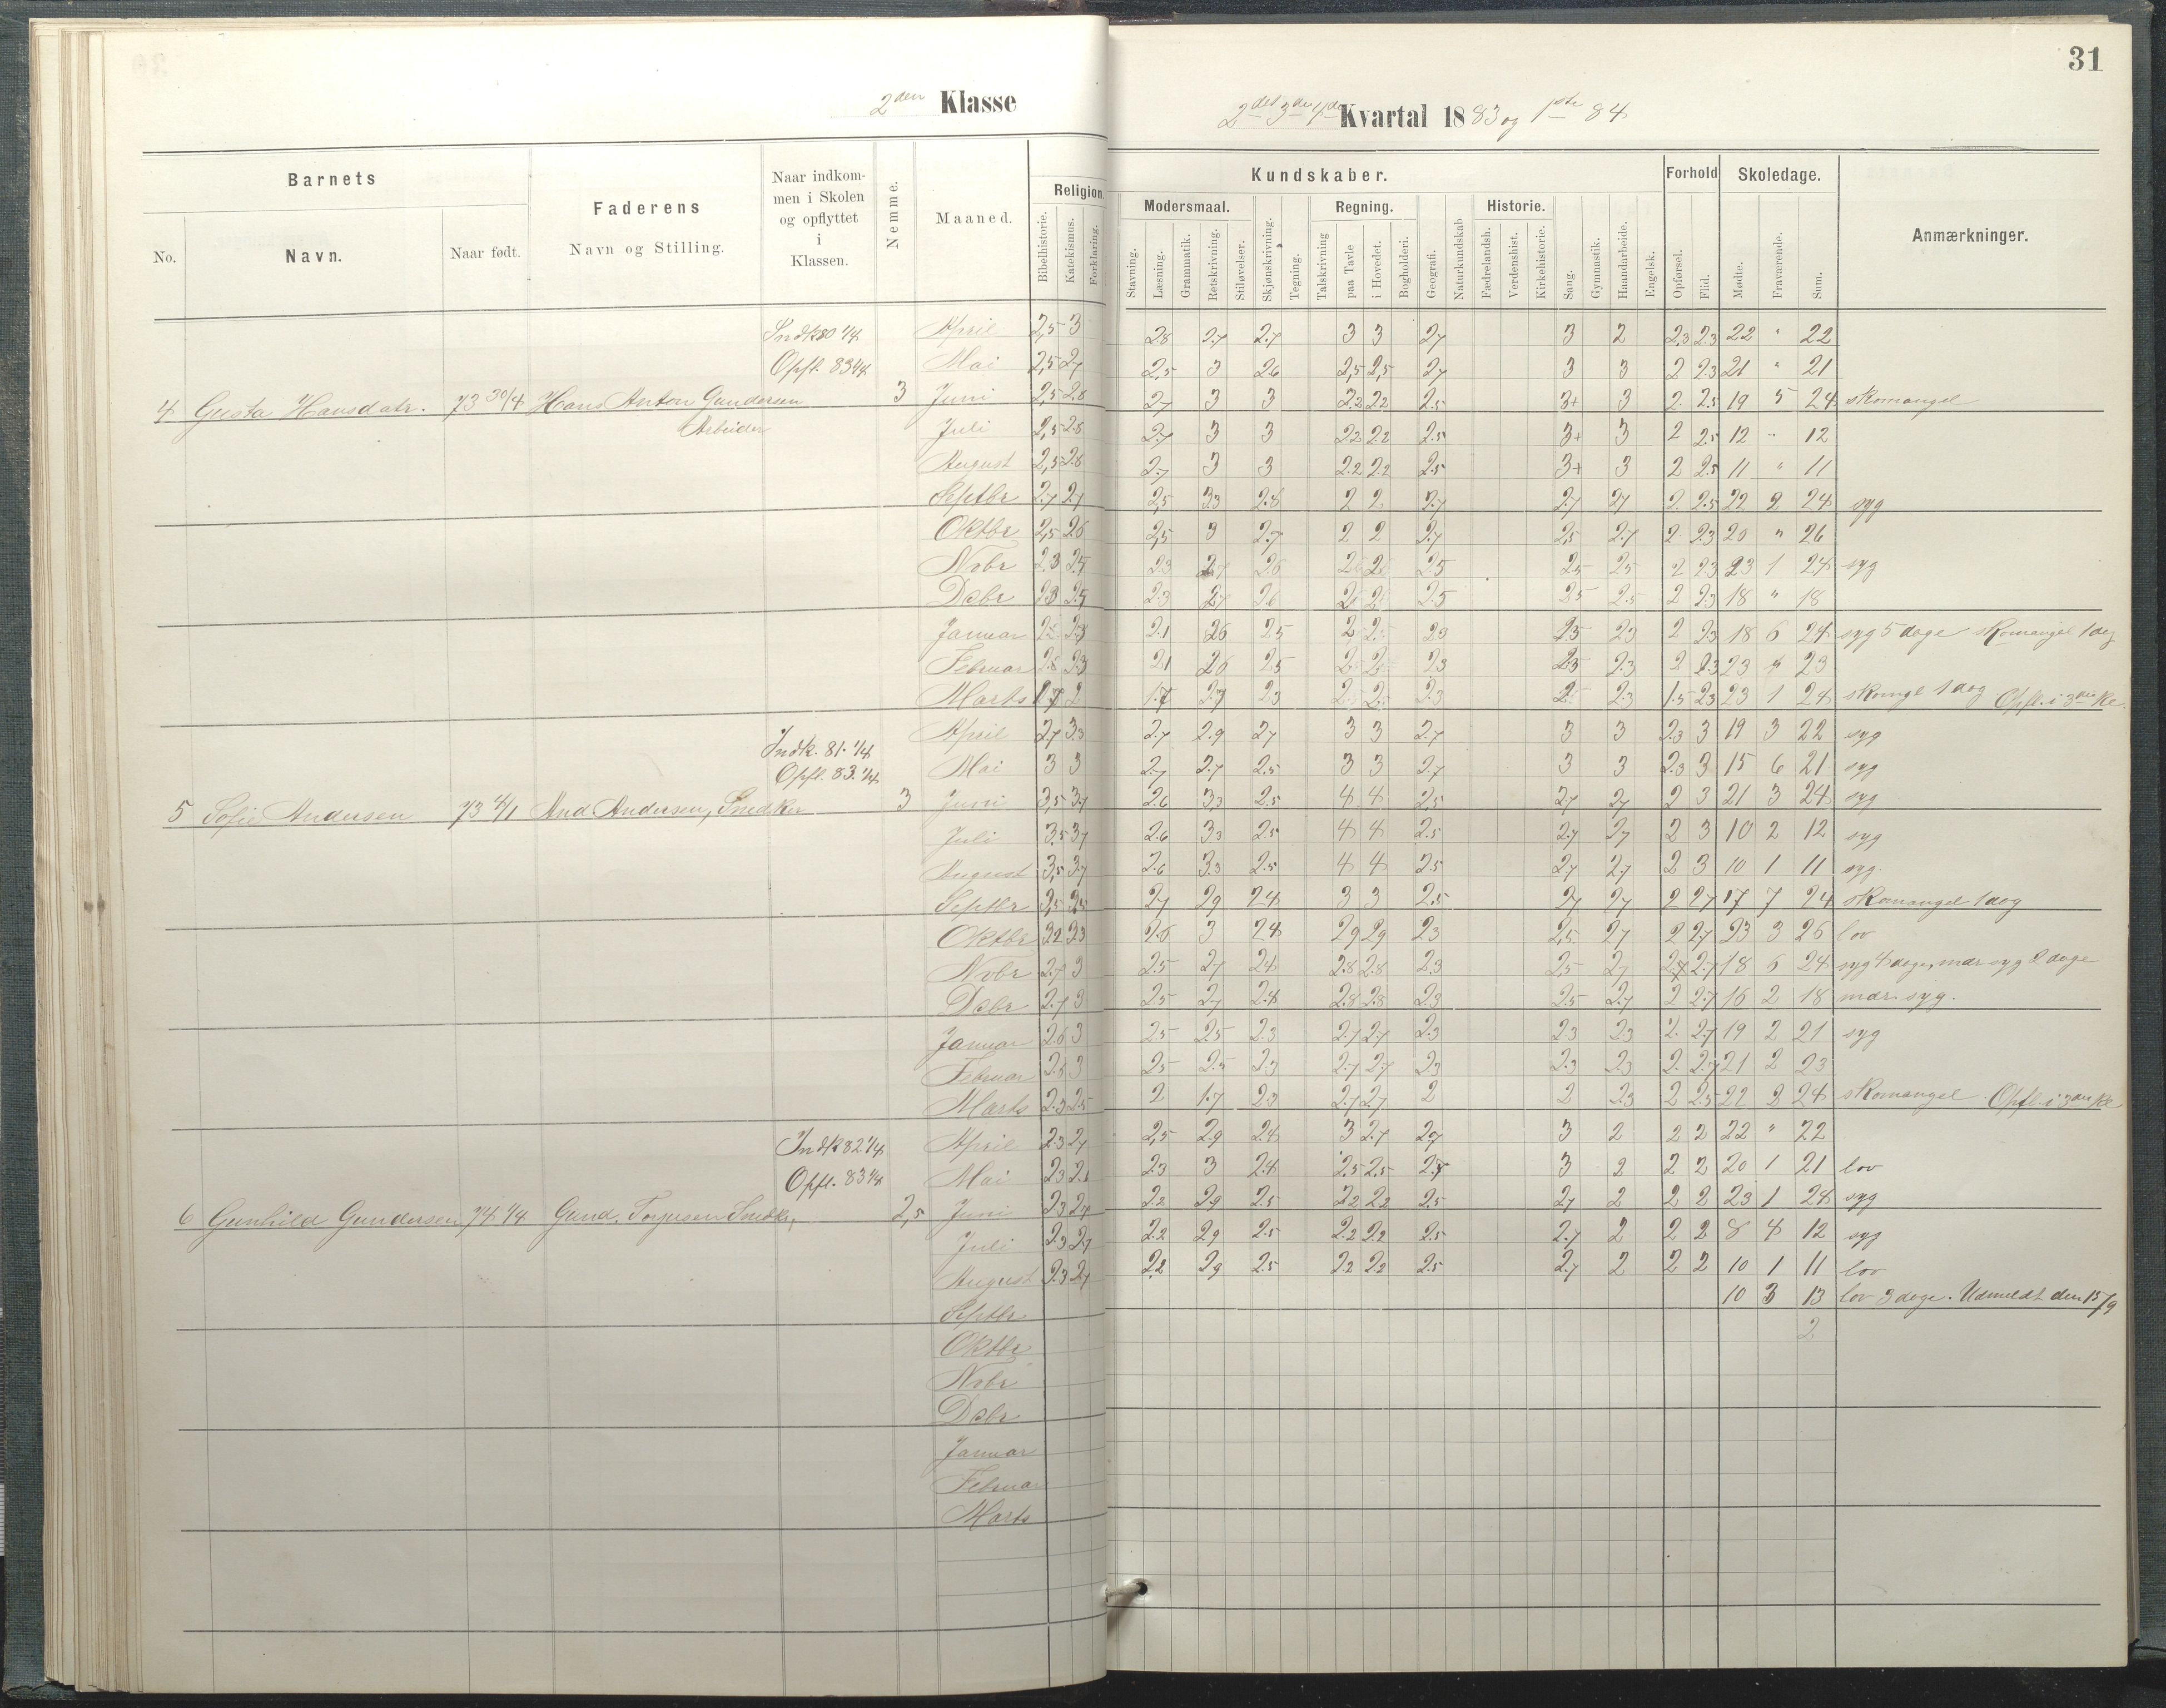 31
2den Klasse
2det 3de 4de Kvartal 1883 og 1ste 84
Barnets
Faderens
Naar indkommen i Skolen og opflyttet i Klassen.
Nemme.
Maaned.
Religion.
Kundskaber.
Forhold
Skoledage.
Anmærkninger.
No.
Navn.
Naar født.
Navn og Stilling.
Modersmaal.
Regning.
Historie.
Bibelhistorie. Katekismus. Forklaring. Stavning. Læsning. Grammatik. Retskrivning. Stiløvelser. Skjønskrivning. Tegning. Talskrivning paa Tavle i Hovedet. Bogholderi. Geografi. Naturkundskab Fædrelandsh. Verdenshist. Kirkehistorie. Sang. Gymnastik. Haandarbeide. Engelsk. Opførsel. Flid. Mødte. Fraværende. Sum.
Indk 80 1/4 April 2,5 3 2.8 2.7 2.7 3 3 2.7 3 2 2.3 2.3 22 " 22
Opfl. 83 1/4 Mai 2,5 2.7 2,5 3 2.6 2,5 2,5 2.7 3 3 2 2.3 21 " 21
4 Gusta Hansdatr. 73 30/4 Hans Anton Gundersen 3 Juni 2,5 2.8 2.7 3 3 2.2 2.2 2.5 3+ 3 2. 2.5 19 5 24 skomangel
Arbeider Juli 2,5 2.8 2.7 3 3 2.2 2.2 2.5 3+ 3 2 2.5 12 " 12
August 2,5 2.8 2.7 3 3 2.2 2.2 2.5 3+ 3 2 2.5 11 " 11
Septbr 2.7 2.7 2,5 2.3 2.8 2 2 2.7 2.7 2.7 2. 2.5 22 2 24 syg
Oktbr 2,5 2.6 2,5 3 2.7 2 2 2.7 2.5 2.7 2. 2.3 20 " 26
Nobr 2.3 2.5 2.3 2.7 2.6 2.5 2.5 2.5 2 2.3 23 1 24 syg
Debr 2.3 2.5 2.3 2.7 2.6 2.5 2.5 2.5 2 2.3 18 " 18
Januar 2.1 2.6 2.5 2.3 2.5 2.3 2 2.3 18 6 24 syg 5 dage skomangel 1 dag
Februar 2.1 2.6 2.5 2.3 2.5 2.3 2 2.3 23 " 23
Marts 1.7 2 1.7 2.7 2.3 2.5 2.5 2.3 2 2.3 1.5 2.3 23 1 24 skomgl 1 dag Opfl. i 3die Kl.
April 2.7 3.3 2.7 2.9 2.7 3 3 2.7 3 3 2.3 3 19 3 22 syg
Indk. 81. 1/4
Opfl. 83. 1/4 Mai 3 3 2.7 2.7 2.5 3 3 2.7 3 3 2.3 3 15 6 21 syg
5 Sofie Andersen 73 4/1 And Andersen, Snedker 3 Juni 3,5 3.7 2.6 3.3 2.5 4 4 2.5 2.7 2.7 2 3 21 3 24 syg
Juli 3.5 3.7 2.6 3.3 2.5 4 4 2.5 2.7 2.7 2 3 10 2 12 syg
August 3,5 3.7 2.6 3.3 2.5 4 4 2.5 2.7 2.7 2 3 10 1 11 syg.
Septbr 2.7 2.9 2.4 3 3 2.5 2.7 2.7 2 2.7 17 7 24 skomangel 1 dag
Oktbr 3.2 3.3 2.6 3 2.4 2.9 2.9 2.3 2,5 2.7 2 2.7 23 3 26 lov
Nobr 2.7 3 2.5 2.7 2.4 2.8 2.8 2.3 2,5 2.7 2.7 18 6 24 syg 4 dage, mdr syg 2 dage
Debr 2.7 3 2.5 2.7 2.4 2.8 2.8 2.3 2.5 2.7 2 2.7 16 2 18 mdr. syg.
Januar 2.6 3 2.5 2.5 2.3 2.7 2.7 2.3 2.3 2.3 2. 2.7 19 2 21 syg
Februar 2.6 3 2.5 2.5 2.3 2.7 2.7 2.3 2.3 2.3 2. 2.7 21 2 23
Marts 2.3 2.5 2 1.7 2.3 2.7 2.7 2 2 2.3 2 2.5 22 2 24 skomangel. Opfl. i 3die Kl
Indk 82 1/4 April 2.3 2.7 2,5 2.9 2.4 3 2.7 2.7 3 2 2 2 22 " 22
Opfl. 83 1/4 Mai 2.3 2.3 3 2.4 2,5 2,5 2.7 3 2 2 2 20 1 21 lov
6 Gunhild Gundersen 74 1/4 Gund. Torjusen Snedker, 2,5 Juni 2.3 2.7 2.2 2.9 2.5 2.2 2.2 2.5 2.7 2 2 2 23 1 24 syg
Juli 2.3 2.7 2.2 2.9 2.5 2.2 2.2 2.5 2.7 2 2 2 8 4 12 syg
August 2.3 2.7 2.2 2.9 2.5 2.2 2.2 2.5 2.7 2 2 2 10 1 11 lov
Septbr 10 3 13 lov 3 dage. Udmeldt den 15/9
Oktbr 2
Nobr
Debr
Januar
Februar
Marts